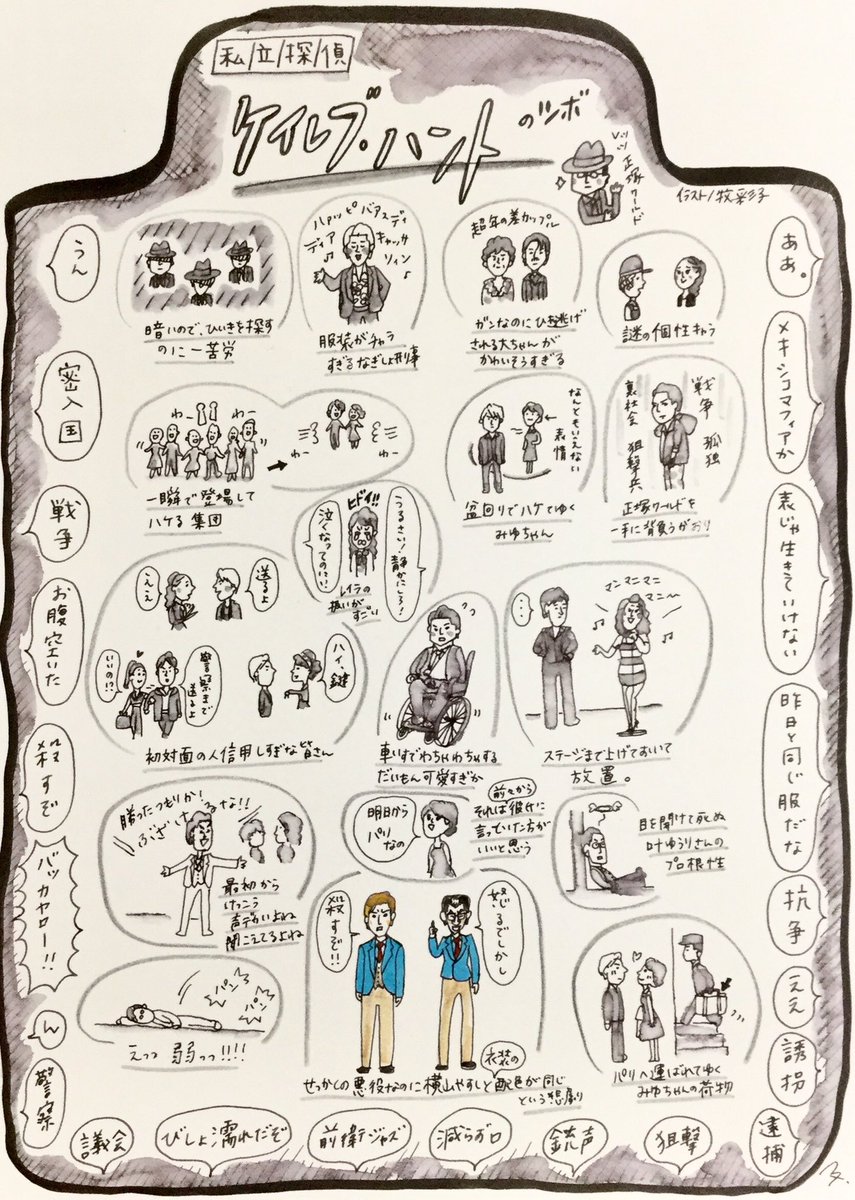 私/立/探/偵
ケイレブ・ハント
のツボ
正塚ワールド
イラスト/牧彩子
うん
密入国
戦争
お腹空いた
殺すぞ
バッカヤロー!!
ん
警察
暗いので、ひいきを探す
のに一苦労
ハァッピバアスディ
ディア キャッサ
リィン
服装がチャラ
すぎるなぎしょ刑事
超年の差カップル
ガンなのにひき逃げ
される大ちゃんが
かわいそうすぎる
謎の個性キャラ
わー
わー
わー
わー
一瞬で登場して
ハケる集団
なんともいえない
表情
盆回りでハケてゆく
みゆちゃん
戦争
孤独
裏社会
狙撃兵
正塚ワールドを
一手に背負うがおり
ヒドイ!!
うるさい!静かにしろ!
泣くなってのに!!
レイラの
扱いが
すごい
送るよ
ええ
警察まで
送るよ
いいの!?
ハイ、鍵
初対面の人信用しすぎな皆さん
車いすでわちゃわちゃする
だいもん可愛すぎか
マンマニマニ
マニ〜
・・・
ステージまで上げておいて
放置。
勝ったつもりか!
ふざけるな!!
最初から
けっこう
声デカいよね
聞こえてるよね
明日から
パリなの
前々から
それは彼氏に
言っていた方が
いいと思う
目を開けて死ぬ
叶ゆうりさんの
プロ根性
パン
パン
えっっ 弱っっ!!!!
殺すぞ!!
怒るでしかし
せっかくの悪役なのに横山やすしと衣装の配色が同じ
という悲劇
パリへ運ばれてゆく
みゆちゃんの荷物
ああ。
メキシコマフィアか
表じゃ生きていけない
昨日と同じ服だな
抗争
ええ
誘拐
逮捕
議会
びしょ濡れだぞ
前衛ジャズ
減らず口
銃声
狙撃